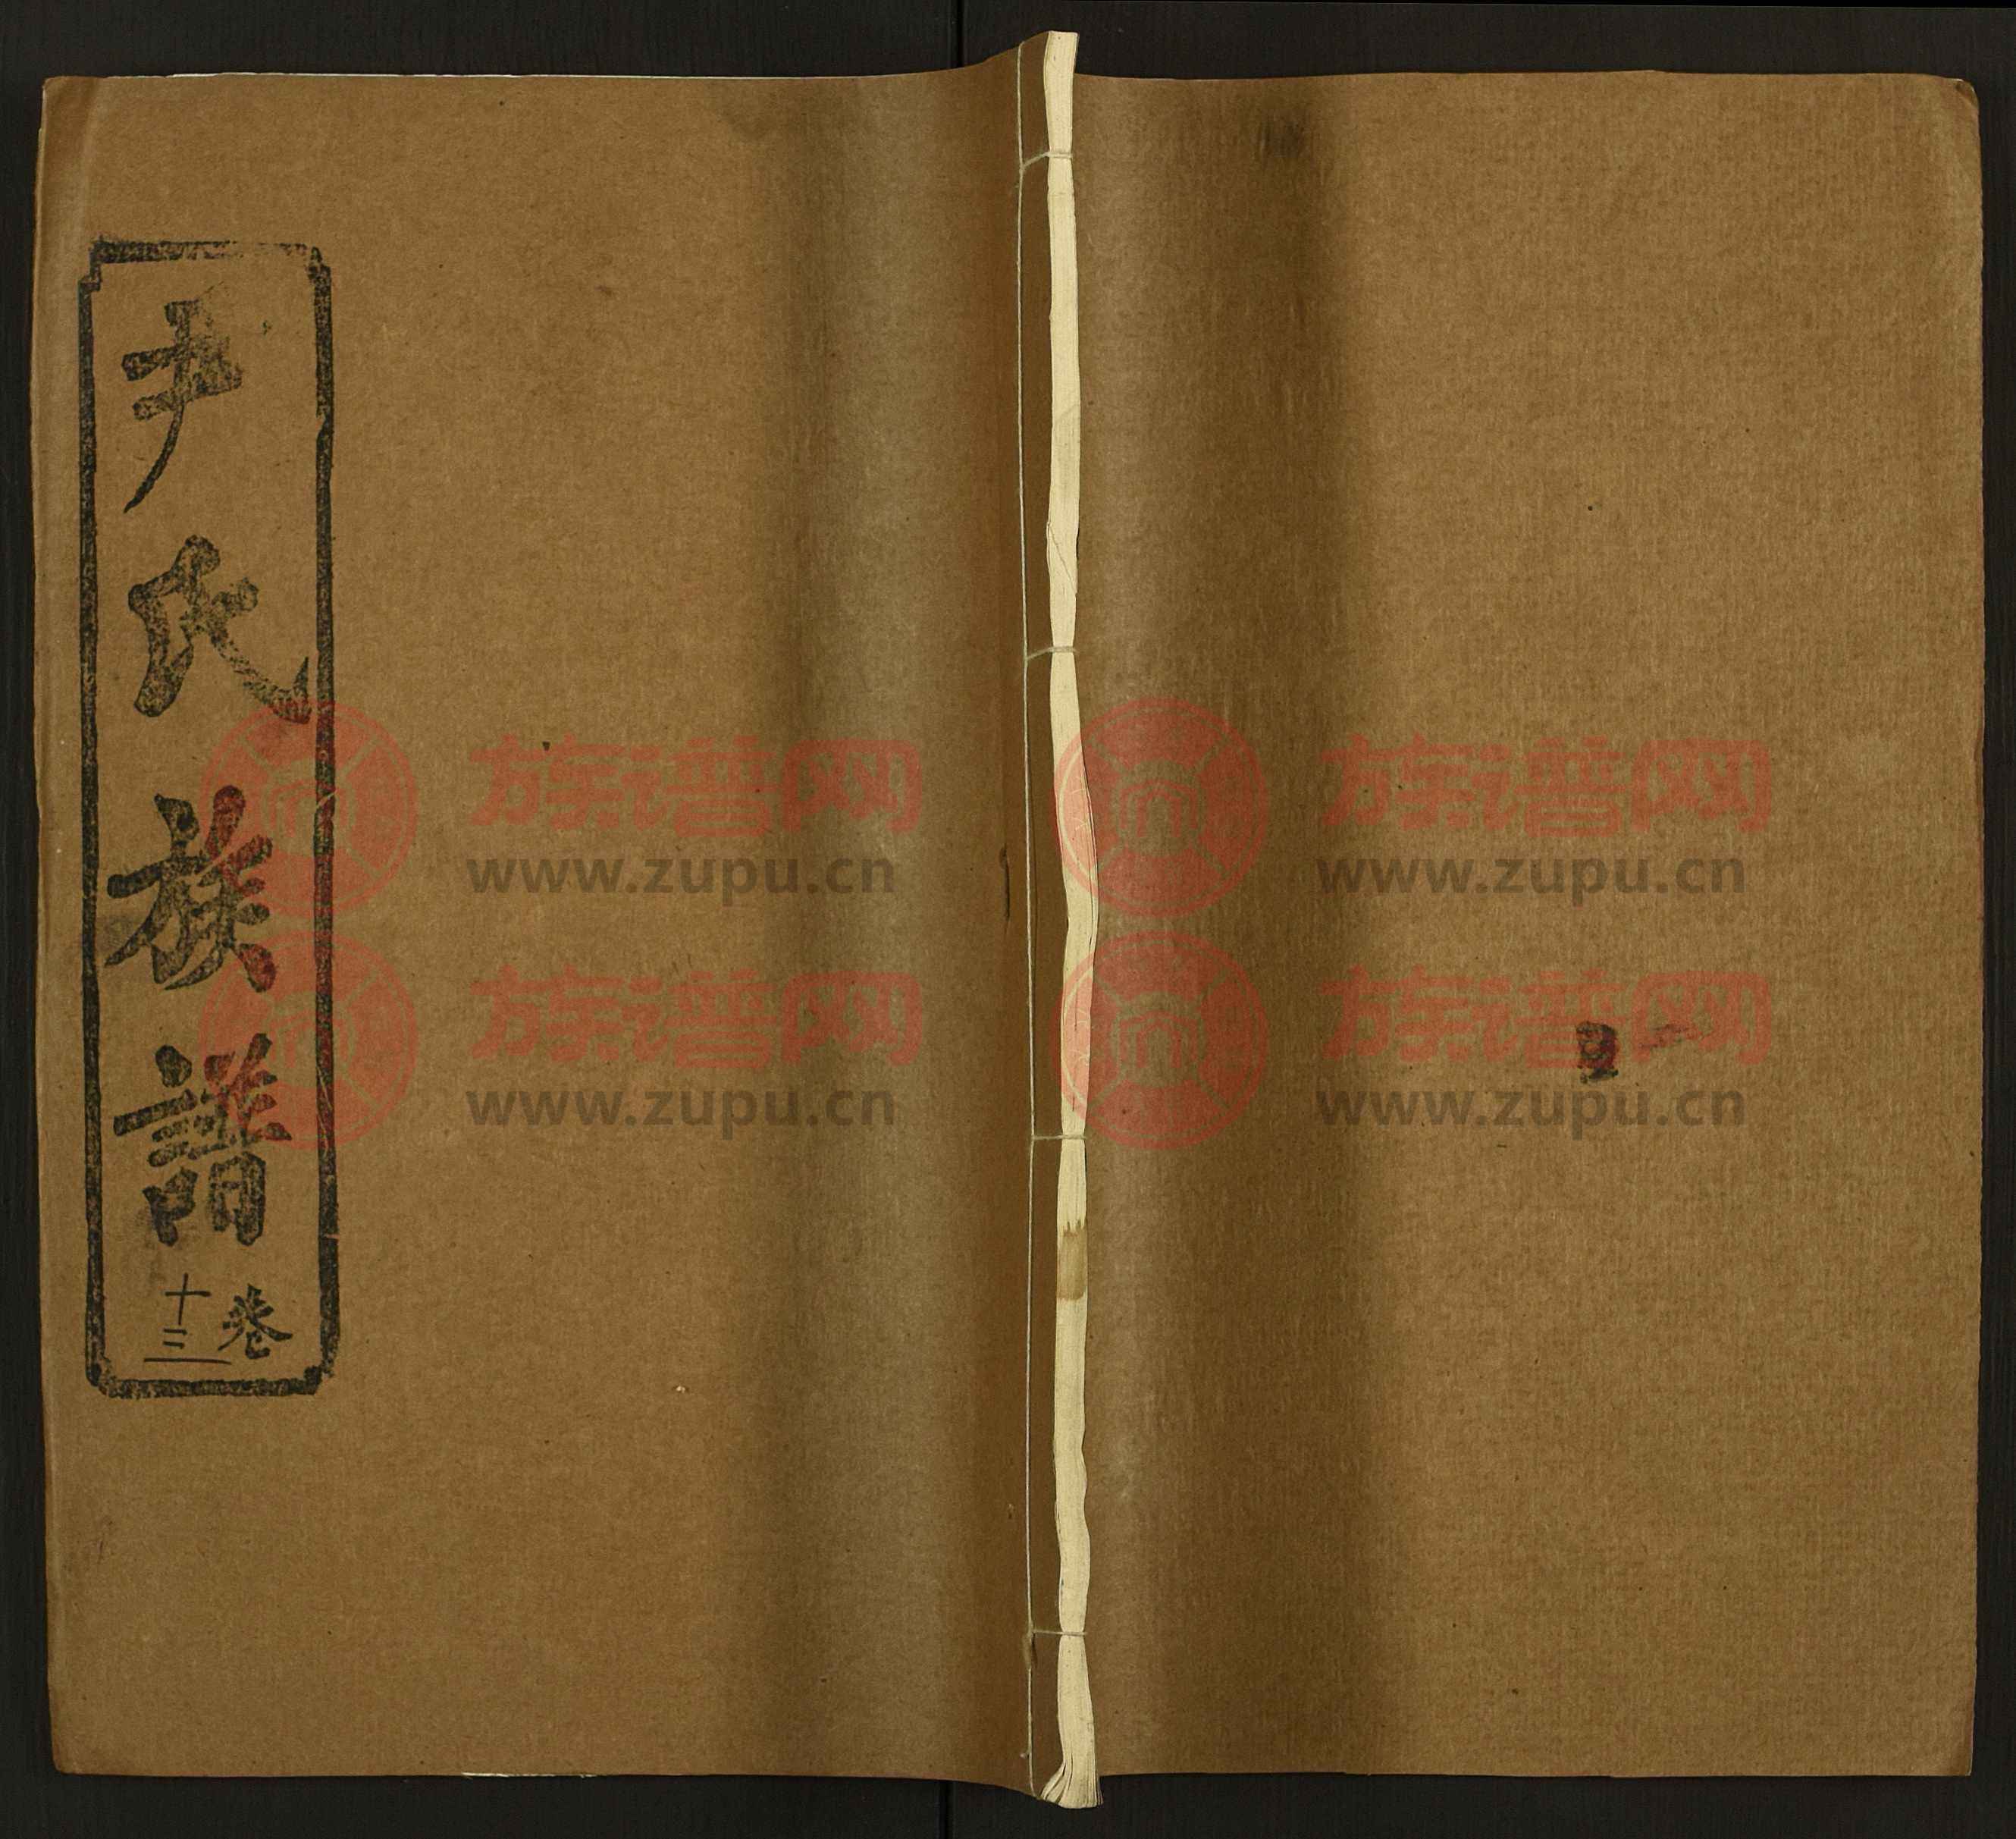 尹氏族譜
卷
十三
族谱网
www.zupu.cn
族谱网
www.zupu.cn
族谱网
www.zupu.cn
族谱网
www.zupu.cn